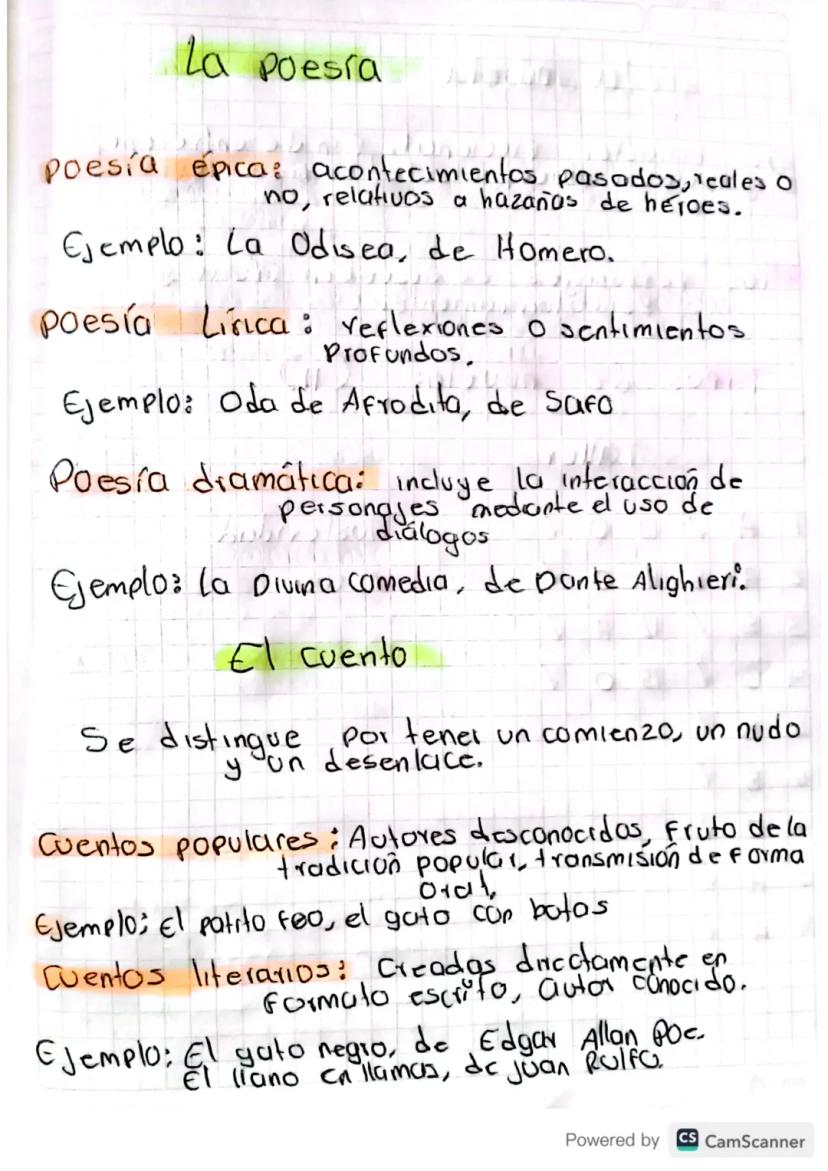 La poesía
poesía épica: acontecimientos pasados, reales o
no, relativos a hazañas de héroes.
Ejemplo: La Odisea, de Homero.
poesía Lírica: reflexiones o sentimientos
Profundos.
Ejemplo: Oda de Afrodita, de Safo
Poesía dramática: incluye la interacción de
personajes mediante el uso de
diálogos
Ejemplo: La Divina comedia, de Dante Alighieri.
El cuento
Se distingue por tener un comienzo, un nudo
y un desenlace.
Cuentos populares: Autores desconocidos, fruto de la
tradición popular, transmisión de forma
oral,
Ejemplo: El patito feo, el gato con botas
Cuentos literarios: Creados directamente en
formato escrito, autor conocido.
Ejemplo: El gato negro, de Edgar Allan Poe.
El llano en llamas, de Juan Rulfo.
Powered by CS CamScanner